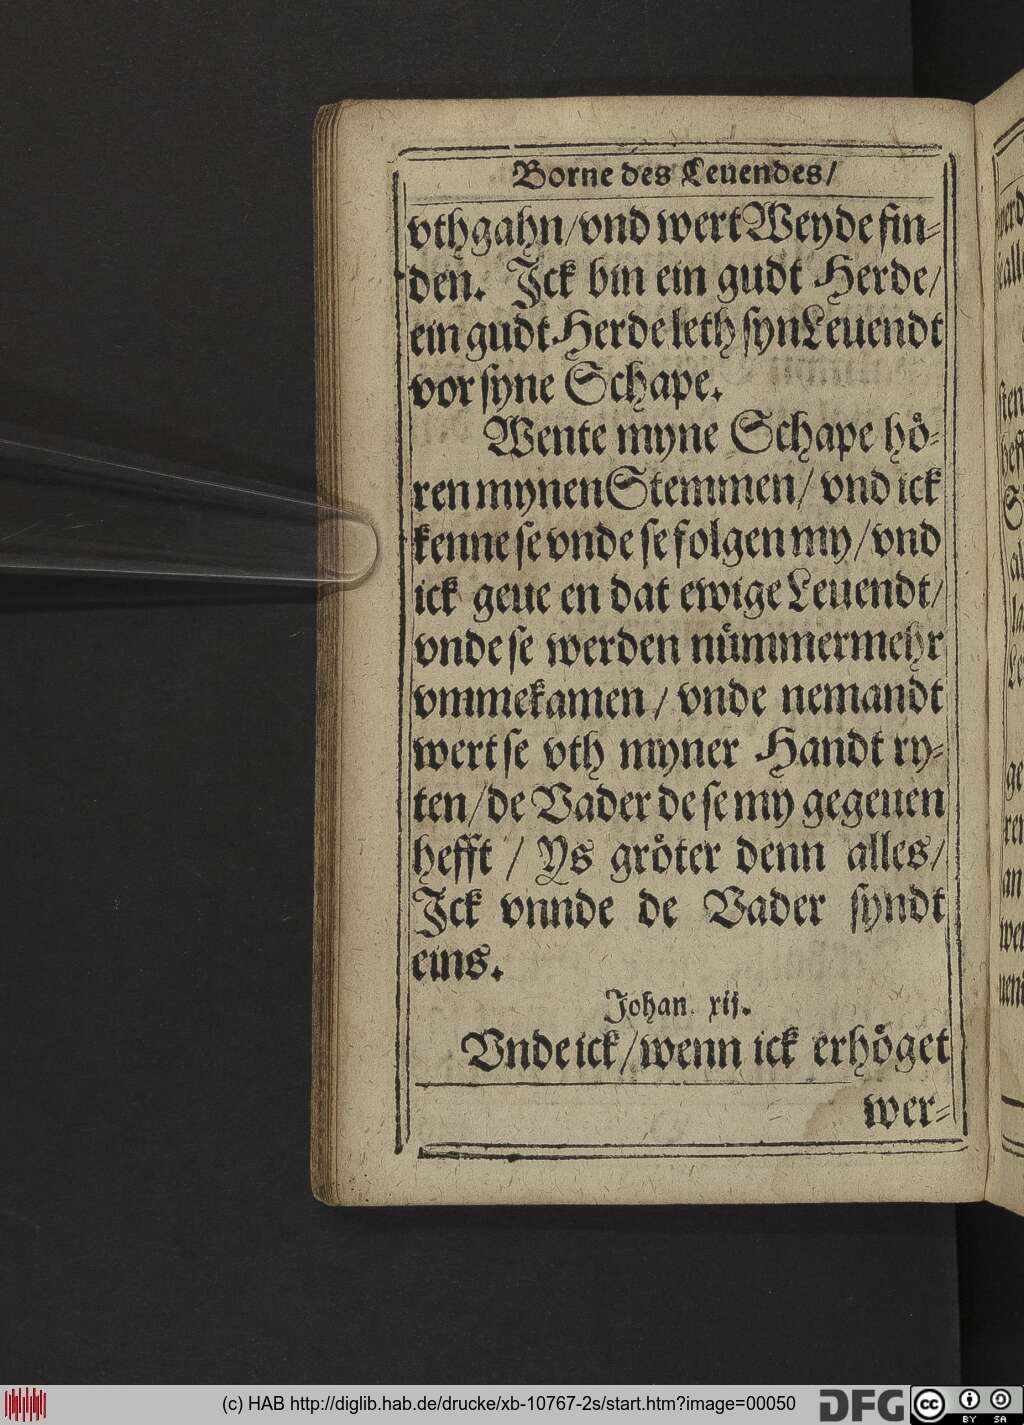 Borne des Leuendes/
vthgahn/vnd wert Weyde fin⸗
den. Jck bin ein gudt Herde/
ein gudt Herde leth syn Leuendt
vor syne Schape.
Wente myne Schape hoͤ⸗
ren mynen Stemmen/ vnd ick
kenne se vnde se folgen my/vnd
ick geue en dat ewige Leuendt/
vnde se werden nuͤmmermehr
vmmekamen/ vnde nemandt
wert se vth myner Handt ry⸗
ten/de Vader de se my gegeuen
hefft / Ys groͤter denn alles/
Jck vnnde de Vader syndt
eins.
Johan. xij.
Vnde ick/wenn ick erhoͤget
wer⸗
(c) HAB http://diglib.hab.de/drucke/xb-10767-2s/start.htm?image=00050
DFG
cc
BY SA